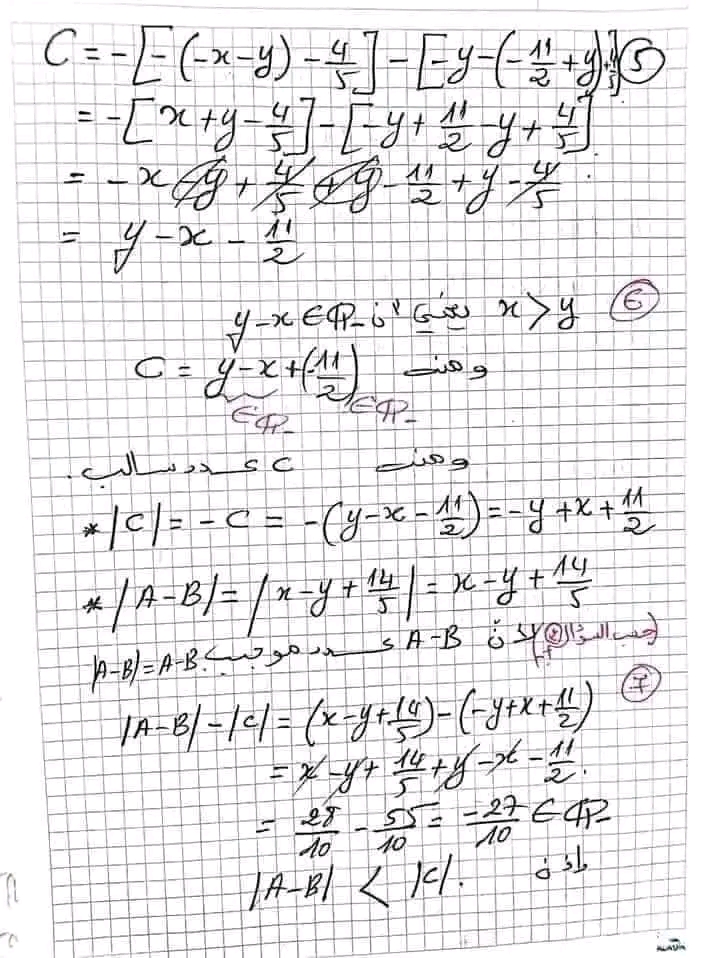 C = -[-(-x-y) - 4/5] - [-y-(-11/2+y)+4/5] ⑤
= -[x+y-4/5] - [-y+11/2-y+4/5]
= -x-y+4/5+y-11/2+y-4/5
= y-x-11/2
⑥ x>y يعني أن y-x∈ℚ₋
ومنه C = y-x+(-11/2)
∈ℚ₋ ∈ℚ₋
ومنه C عدد سالب.
* |C| = -C = -(y-x-11/2) = -y+x+11/2
* |A-B| = |x-y+14/5| = x-y+14/5
(حسب السؤال) لأن A-B عدد موجب. |A-B|=A-B
⑦
|A-B|-|C| = (x-y+14/5)-(-y+x+11/2)
= x-y+14/5+y-x-11/2.
= 28/10 - 55/10 = -27/10 ∈ℚ₋
إذن |A-B| < |C|.